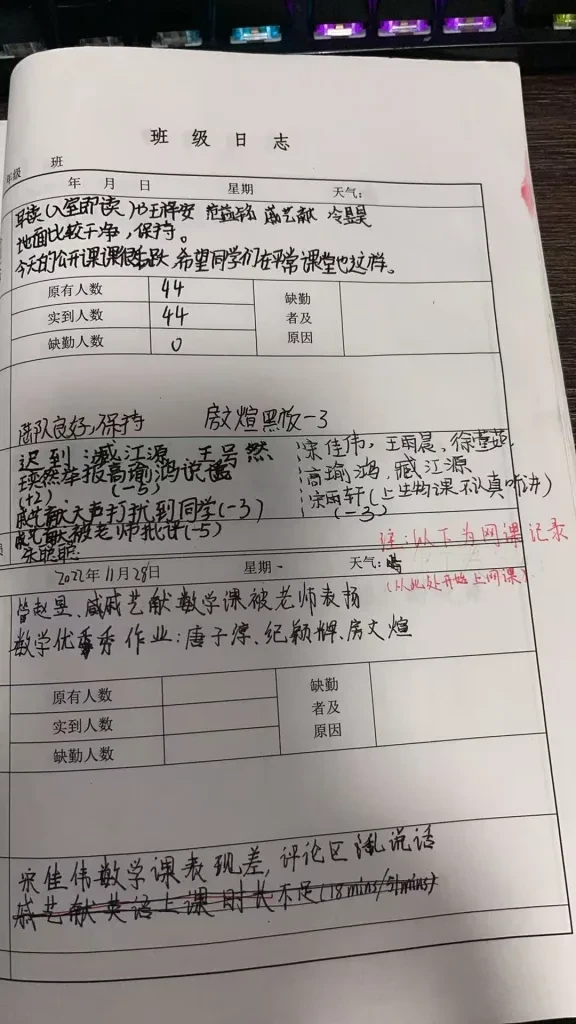 班级日志
年级 班
年 月 日 星期 天气:
早读(入室即读)
地面比较干净,保持。
今天的公开课课很活跃,希望同学们在平常课堂也这样。
原有人数 44 缺勤者及原因
实到人数 44
缺勤人数 0
路队良好,保持 房文煊黑板-3
迟到:臧江源 王号然 宋佳伟,王雨晨,徐莹
举报高瑜鸿说 高瑜鸿,臧江源
(+2) (-5) 宋雨轩(上生物课不认真听讲)
戚艺献大声打扰到同学(-3) (-3)
被老师批评(-5) 注:以下为网课记录
2022年11月28日 星期一 天气:晴 (从此处开始上网课)
曾赵昱、戚艺献数学课被老师表扬
数学优秀作业:唐子淳、纪颖牌、房文煊
原有人数 缺勤者及原因
实到人数
缺勤人数
宋佳伟数学课表现差,评论区乱说话
戚艺献英语上课时长不足(18mins/51mins)